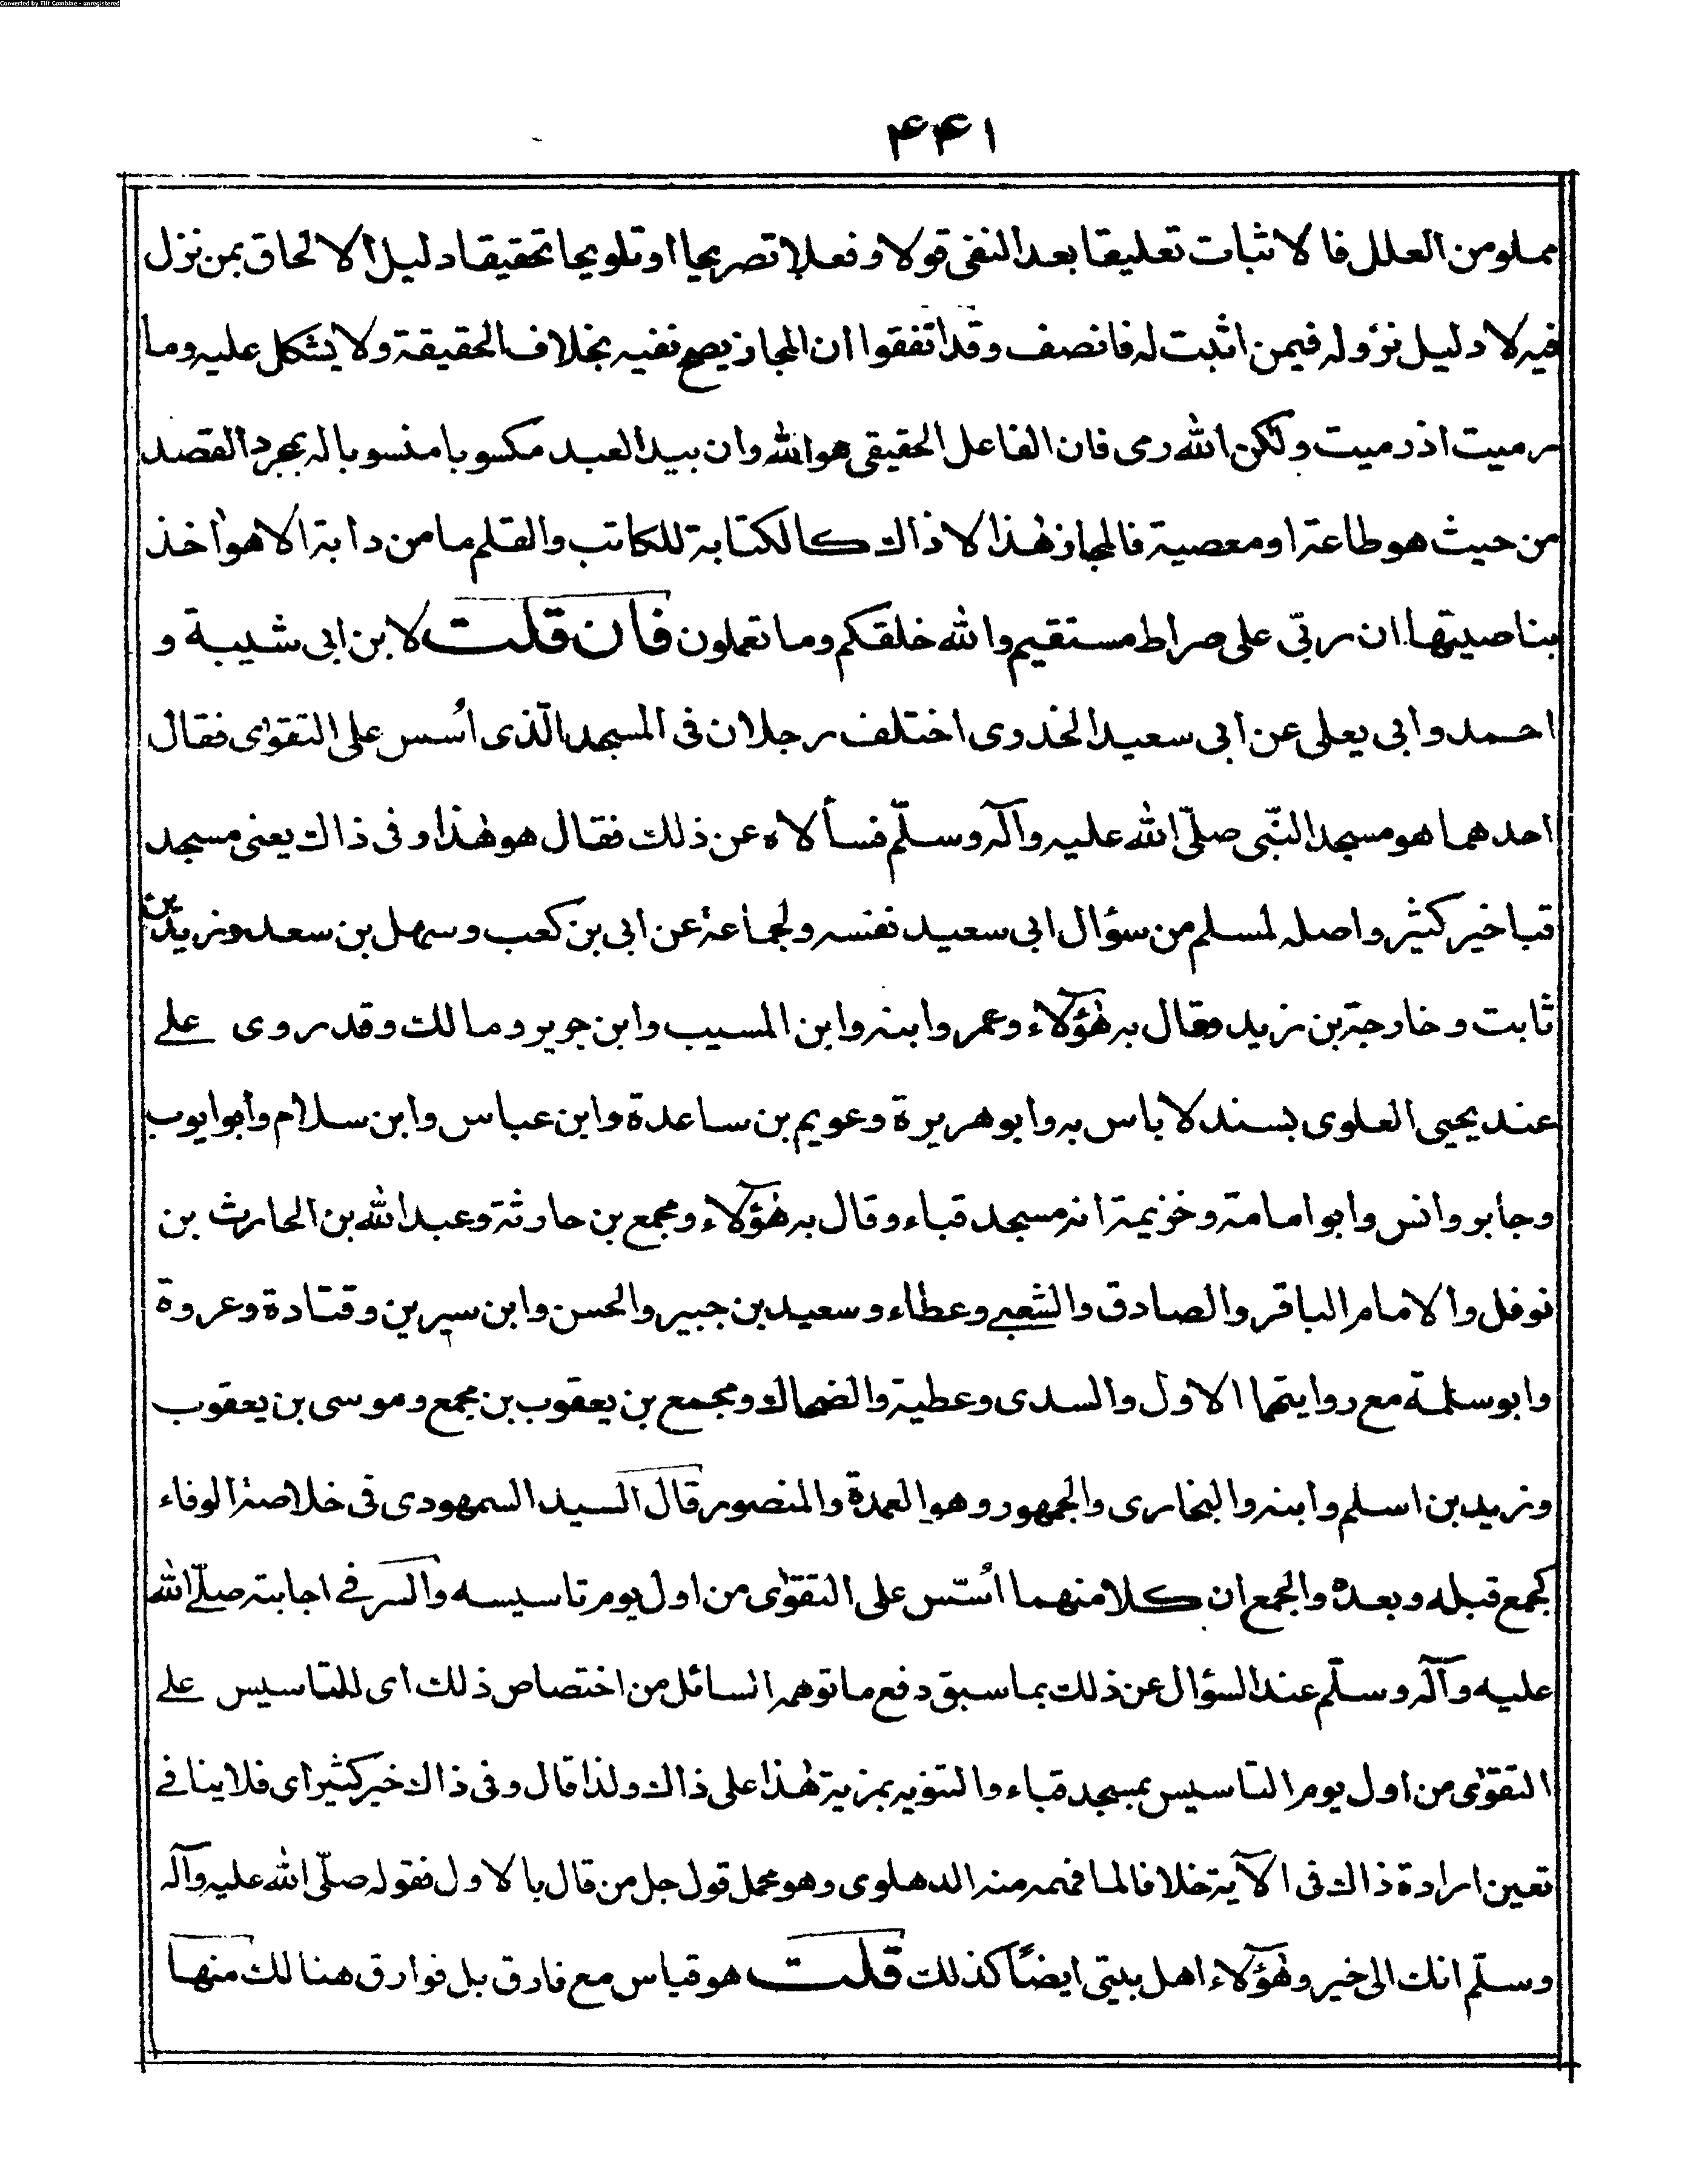 Converted by Tiff Combine - unregistered
۴۴۱
مملو من العلل فالاثبات تعليقا بعد النفى قولا وفعلا تصريحا او تلويحا تحقيقا دليل الالحاق بمن نزل
فيه لا دليل نزوله فيمن اثبت له فانصف وقد اتفقوا ان المجاز يصح نفيه بخلاف الحقيقة ولا يشكل عليه وما
رميت اذ رميت ولكن الله رمى فان الفاعل الحقيقى هو الله وان بيد العبد مكسوبا منسوبا له بمجرد القصد
من حيث هو طاعة او معصية فالمجاز هٰذا لا ذاك كالكتابة للكاتب والقلم ما من دابة الا هو اٰخذ
بناصيتها ان ربّى على صراط مستقيم والله خلقكم وما تعملون فان قلت لابن ابى شيبة و
احمد وابى يعلى عن ابى سعيد الخدوى اختلف رجلان فى المسجد الّذى اُسس على التقوٰى فقال
احدهما هو مسجد النّبى صلّى الله عليه وآله وسلّم فسألاه عن ذلك فقال هو هٰذا وفى ذاك يعنى مسجد
قبا خير كثير واصله لمسلم من سؤال ابى سعيد نفسه ولجماعة عن ابى بن كعب وسهل بن سعد وزيد بن
ثابت وخارجة بن زيد وقال به هٰؤلآء وعمر وابنه وابن المسيب وابن جرير ومالك وقد روى علے
عند يحيى العلوى بسند لا باس به وابو هريرة وعويم بن ساعدة وابن عباس وابن سلام وأبو ايوب
وجابر وانس وابو امامة وخزيمة انه مسجد قباء وقال به هٰؤلآء ومجمع بن حارثة وعبد الله بن الحارث بن
نوفل والامام الباقر والصادق والشعبے وعطاء وسعيد بن جبير والحسن وابن سيرين وقتادة وعروة
وابو سلمة مع روايتهما الاول والسدى وعطية والضحاك ومجمع بن يعقوب بن مجمع وموسى بن يعقوب
وزيد بن اسلم وابنه والبخارى والجمهور وهو العمدة والمنصور قال السيد السمهودى فى خلاصة الوفاء
كجمع قبله وبعده والجمع ان كلا منهما اُسّس على التقوٰى من اول يوم تاسيسه والسر فے اجابته صلّے الله
عليه وآله وسلّم عند السؤال عن ذلك بما سبق دفع ما توهم السائل من اختصاص ذلك اى للتاسيس علے
التقوٰى من اول يوم التاسيس بمسجد قباء والتنويه بمزية هٰذا على ذاك ولذا قال وفى ذاك خير كثير اى فلا ينافے
تعين ارادة ذاك فى الآية خلافا لما فهمه منه الدهلوى وهو محمل قول جل من قال بالاول فقوله صلّى الله عليه وآله
وسلّم انك الى خير وهٰؤلآء اهل بيتى ايضًا كذلك قلت هو قياس مع فارق بل فوارق هنالك منها